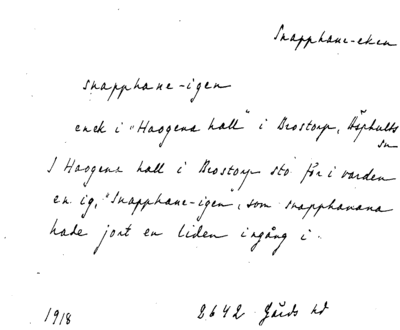 Snapphane-eken
snapphane-igen
enek i "Haagens hall" i Brostorp, Häphults
sn
I Haagens hall i Brostorp sto för i varden
en ig, "Snapphane-igen", som snapphanana
hade jort en liden ingång i.
1918 2642 Gärds hd